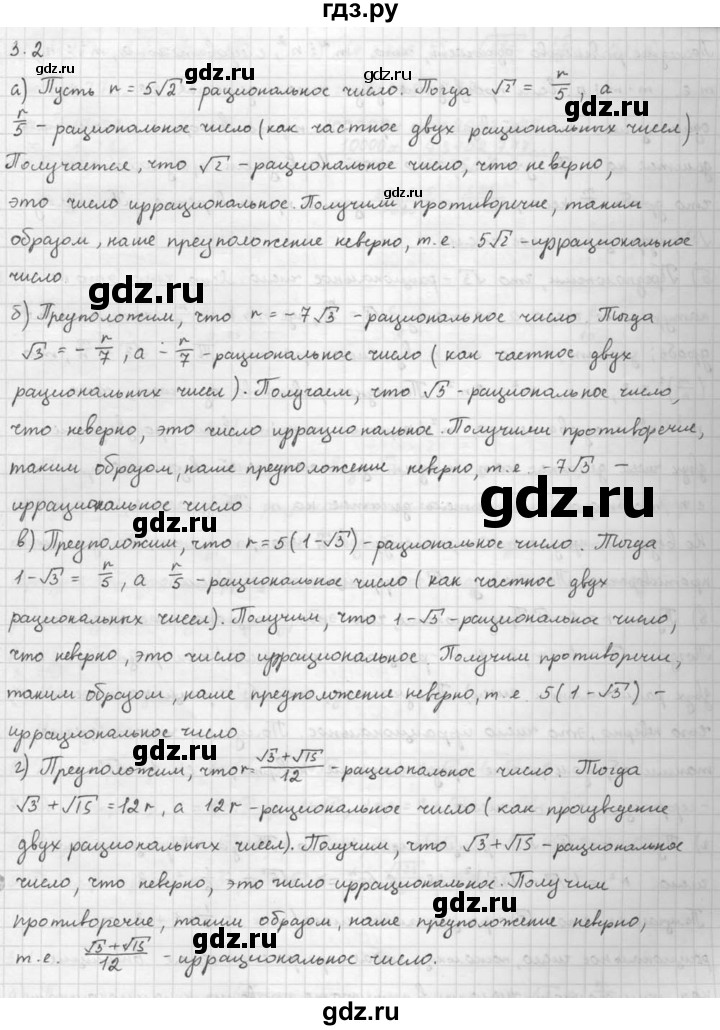 гдз.ру
3.2
а) Пусть r = 5√2 - рациональное число. Тогда √2 = r/5, а
gdz.ru
r/5 - рациональное число (как частное двух рациональных чисел)
Получается, что √2 - рациональное число, что неверно,
gdz.ru
это число иррациональное. Получили противоречие, таким
образом, наше преуположение неверно, т.е. 5√2 - иррациональное
число
gdz.ru
б) Преуположим, что r = -7√3 - рациональное число. Тогда
√3 = - r/7, а - r/7 - рациональное число (как частное двух
gdz.ru
рациональных чисел). Получаем, что √3 - рациональное число,
что неверно, это число иррациональное. Получили противоречие,
таким образом, наше преуположение неверно, т.е. -7√3 -
gdz.ru
иррациональное число
gdz.ru
в) Преуположим, что r = 5(1-√3) - рациональное число. Тогда
1-√3 = r/5, а r/5 - рациональное число (как частное двух
gdz.ru
рациональных чисел). Получим, что 1-√3 - рациональное число,
что неверно, это число иррациональное. Получим противоречие,
gdz.ru
таким образом, наше предположение неверно, т.е. 5(1-√3) -
иррациональное число
gdz.ru
г) Предположим, что r = (√3+√15)/12 - рациональное число. Тогда
√3+√15 = 12r, а 12r - рациональное число (как произведение
gdz.ru
двух рациональных чисел). Получим, что √3+√15 - рациональное
число, что неверно, это число иррациональное. Получим
gdz.ru
противоречие, таким образом, наше предположение неверно,
gdz.ru
т.е. (√3+√15)/12 - иррациональное число.
gdz.ru